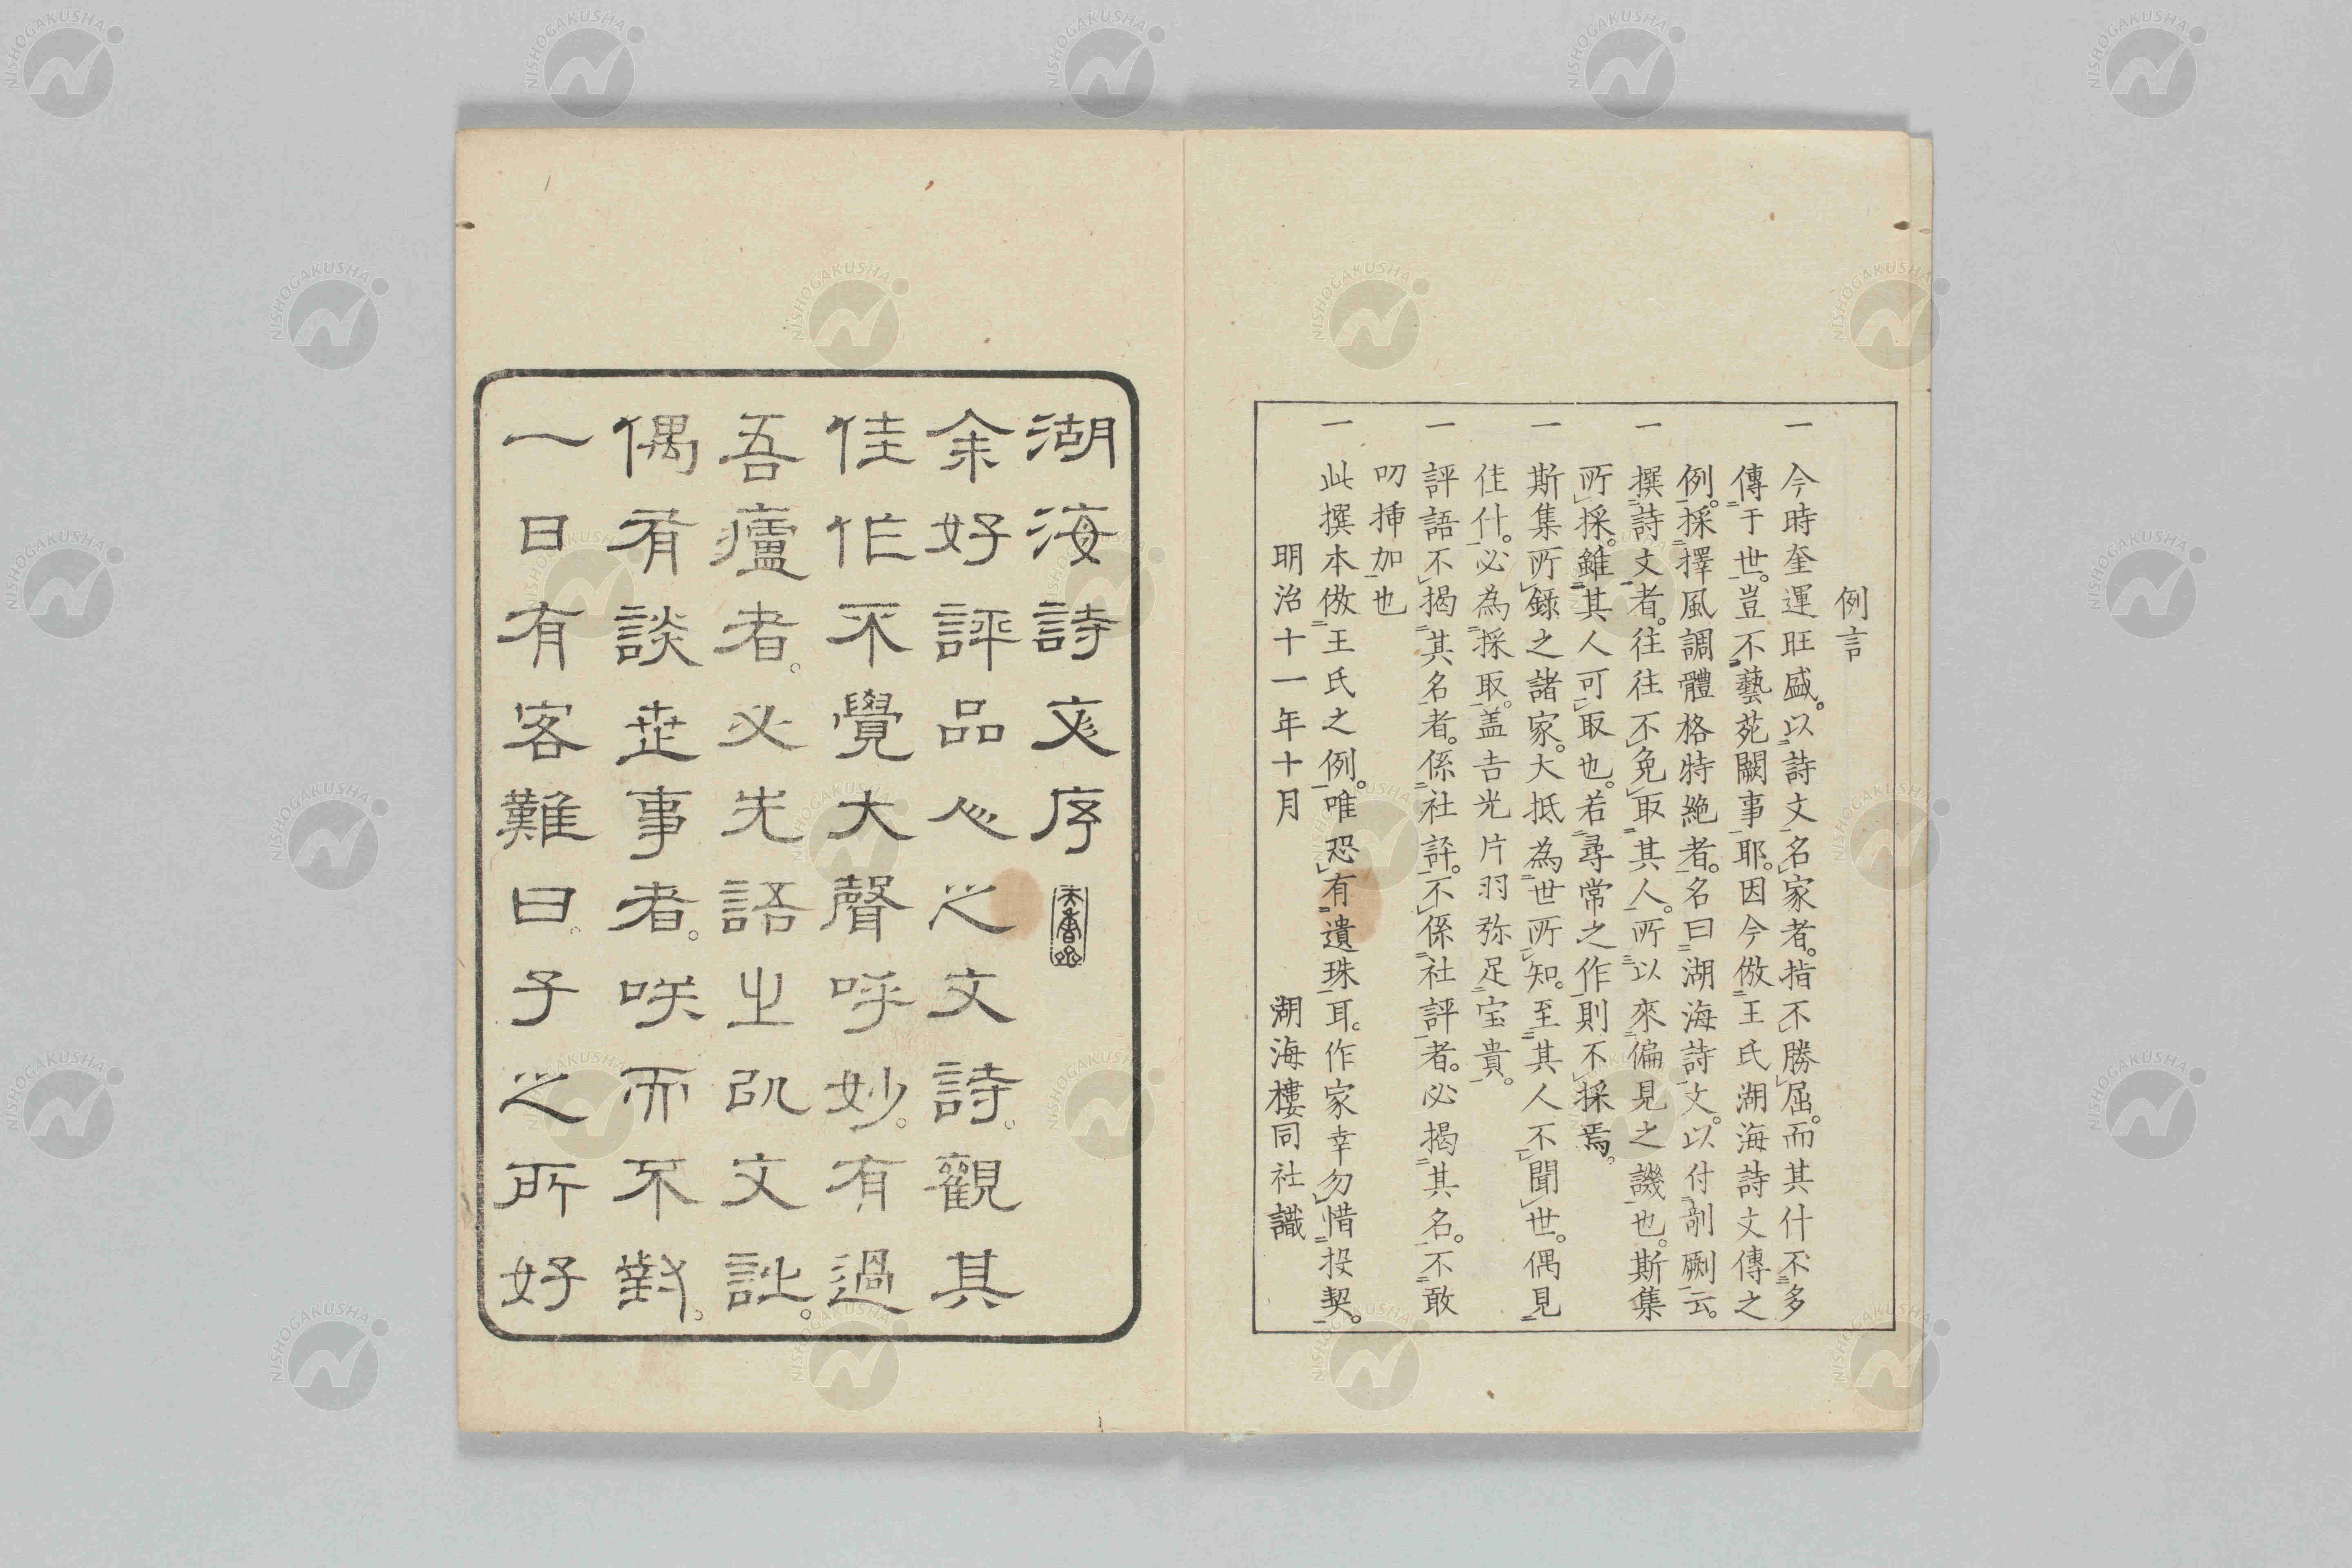 例言
一 今時奎運旺盛。以詩文名家者。指不勝屈。而其什不多
傳于世。豈不藝苑闕事耶。因今倣王氏湖海詩文傳之
例。採擇風調體格特絶者。名曰湖海詩文。以付剞劂云。
一 撰詩文者。往往不免取其人。所以來偏見之譏也。斯集
所採。雖其人可取也。若尋常之作則不採焉。
一 斯集所録之諸家。大抵為世所知。至其人不聞世。偶見
佳什。必為採取。盖吉光片羽弥足宝貴。
一 評語不揭其名者。係社評。不係社評者。必揭其名。不敢
叨挿加也
一 此撰本倣王氏之例。唯恐有遺珠耳。作家幸勿惜投契。
明治十一年十月 湖海樓同社識
湖海詩文序
余好評品心之文詩。觀其
佳作不覺大聲呼妙。有過
吾廬者。必先語之以文訿。
偶有談世事者。咲而不對。
一日有客難曰。子之所好
NISHOGAKUSHA